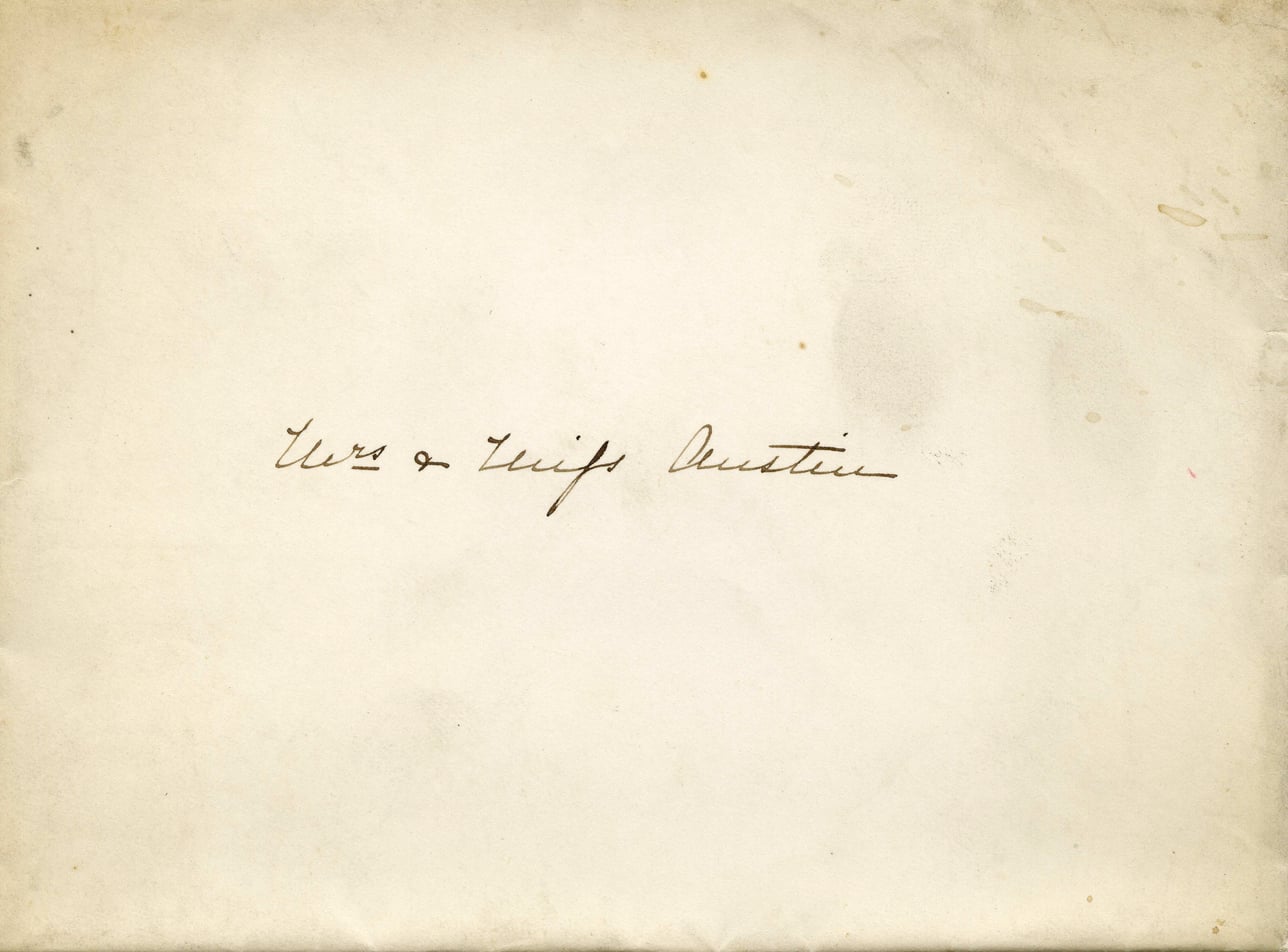 Mrs & Miſs Austin